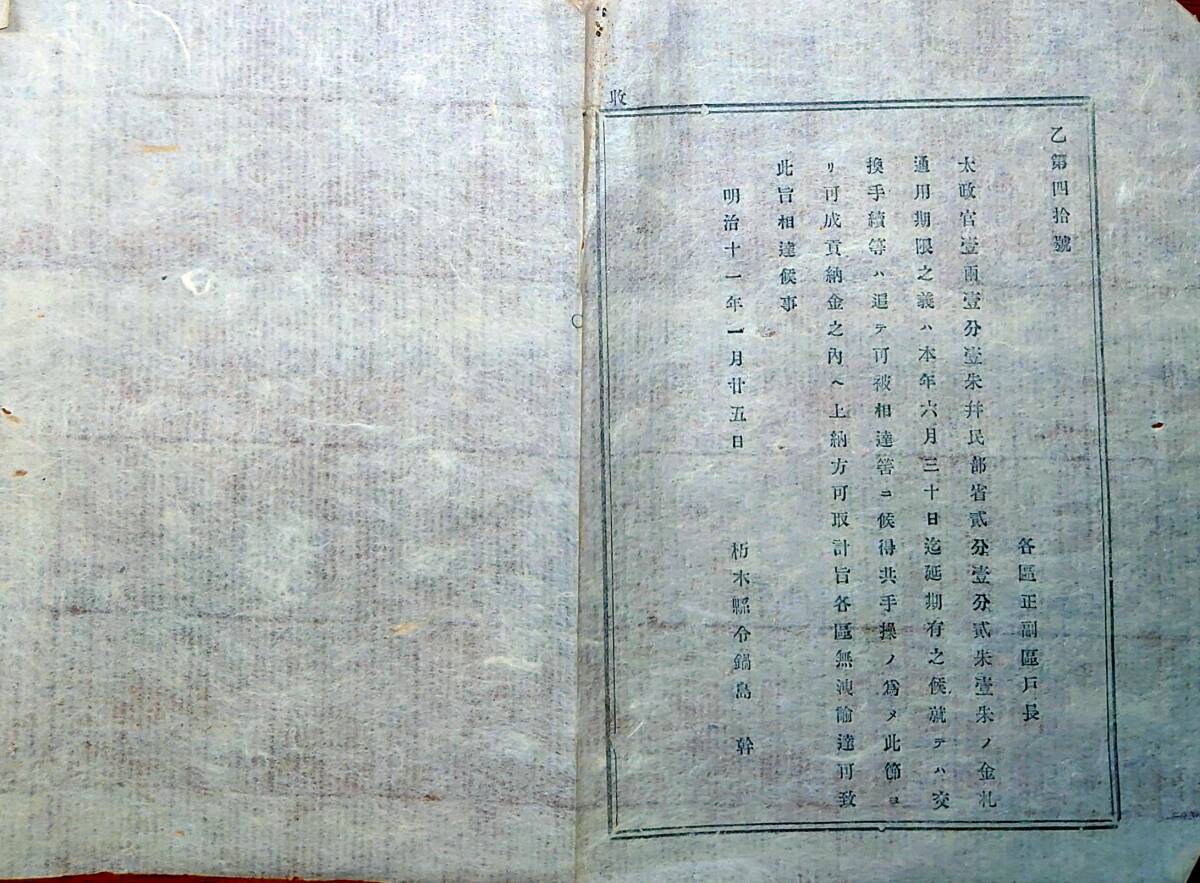 乙第四拾號
各區正副區戸長
太政官壹兩壹分壹朱幷民部省貳分壹分貳朱壹朱ノ金札
通用期限之義ハ本年六月三十日迄延期有之候就テハ交
換手續等ハ追テ可被相達筈ニ候得共手操ノ爲メ此節ヨ
リ可成貢納金之內ヘ上納方可取計旨各區無洩諭達可致
此旨相達候事
明治十一年一月廿五日
朽木縣令鍋島 幹
收